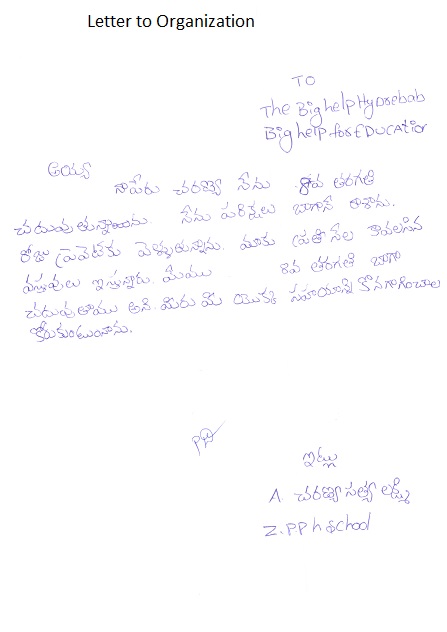 Letter to Organization
TO
The Big help Hydrebab
Big help for EDUCATior
అయ్యా
నాపేరు చరణ్యా నేను 8వ తరగతి
చదువుతున్నాయిను నేను పరిక్షలు బాగానే రాశాను.
రోజు ప్రైవెట్‌కు వెళ్ళుతున్నాను. మాకు ప్రతి నెల కావలసిన
వస్తువులు ఇస్తున్నారు. మేము 8వ తరగతి బాగా
చదువుతాము అని మీరు మీ యొక్క సహయాన్ని కొనసాగించాల
కోరుకుంటున్నాను.
ఇట్లు
A. చరణ్యా సత్యా లక్ష్మి
Z.PP h school